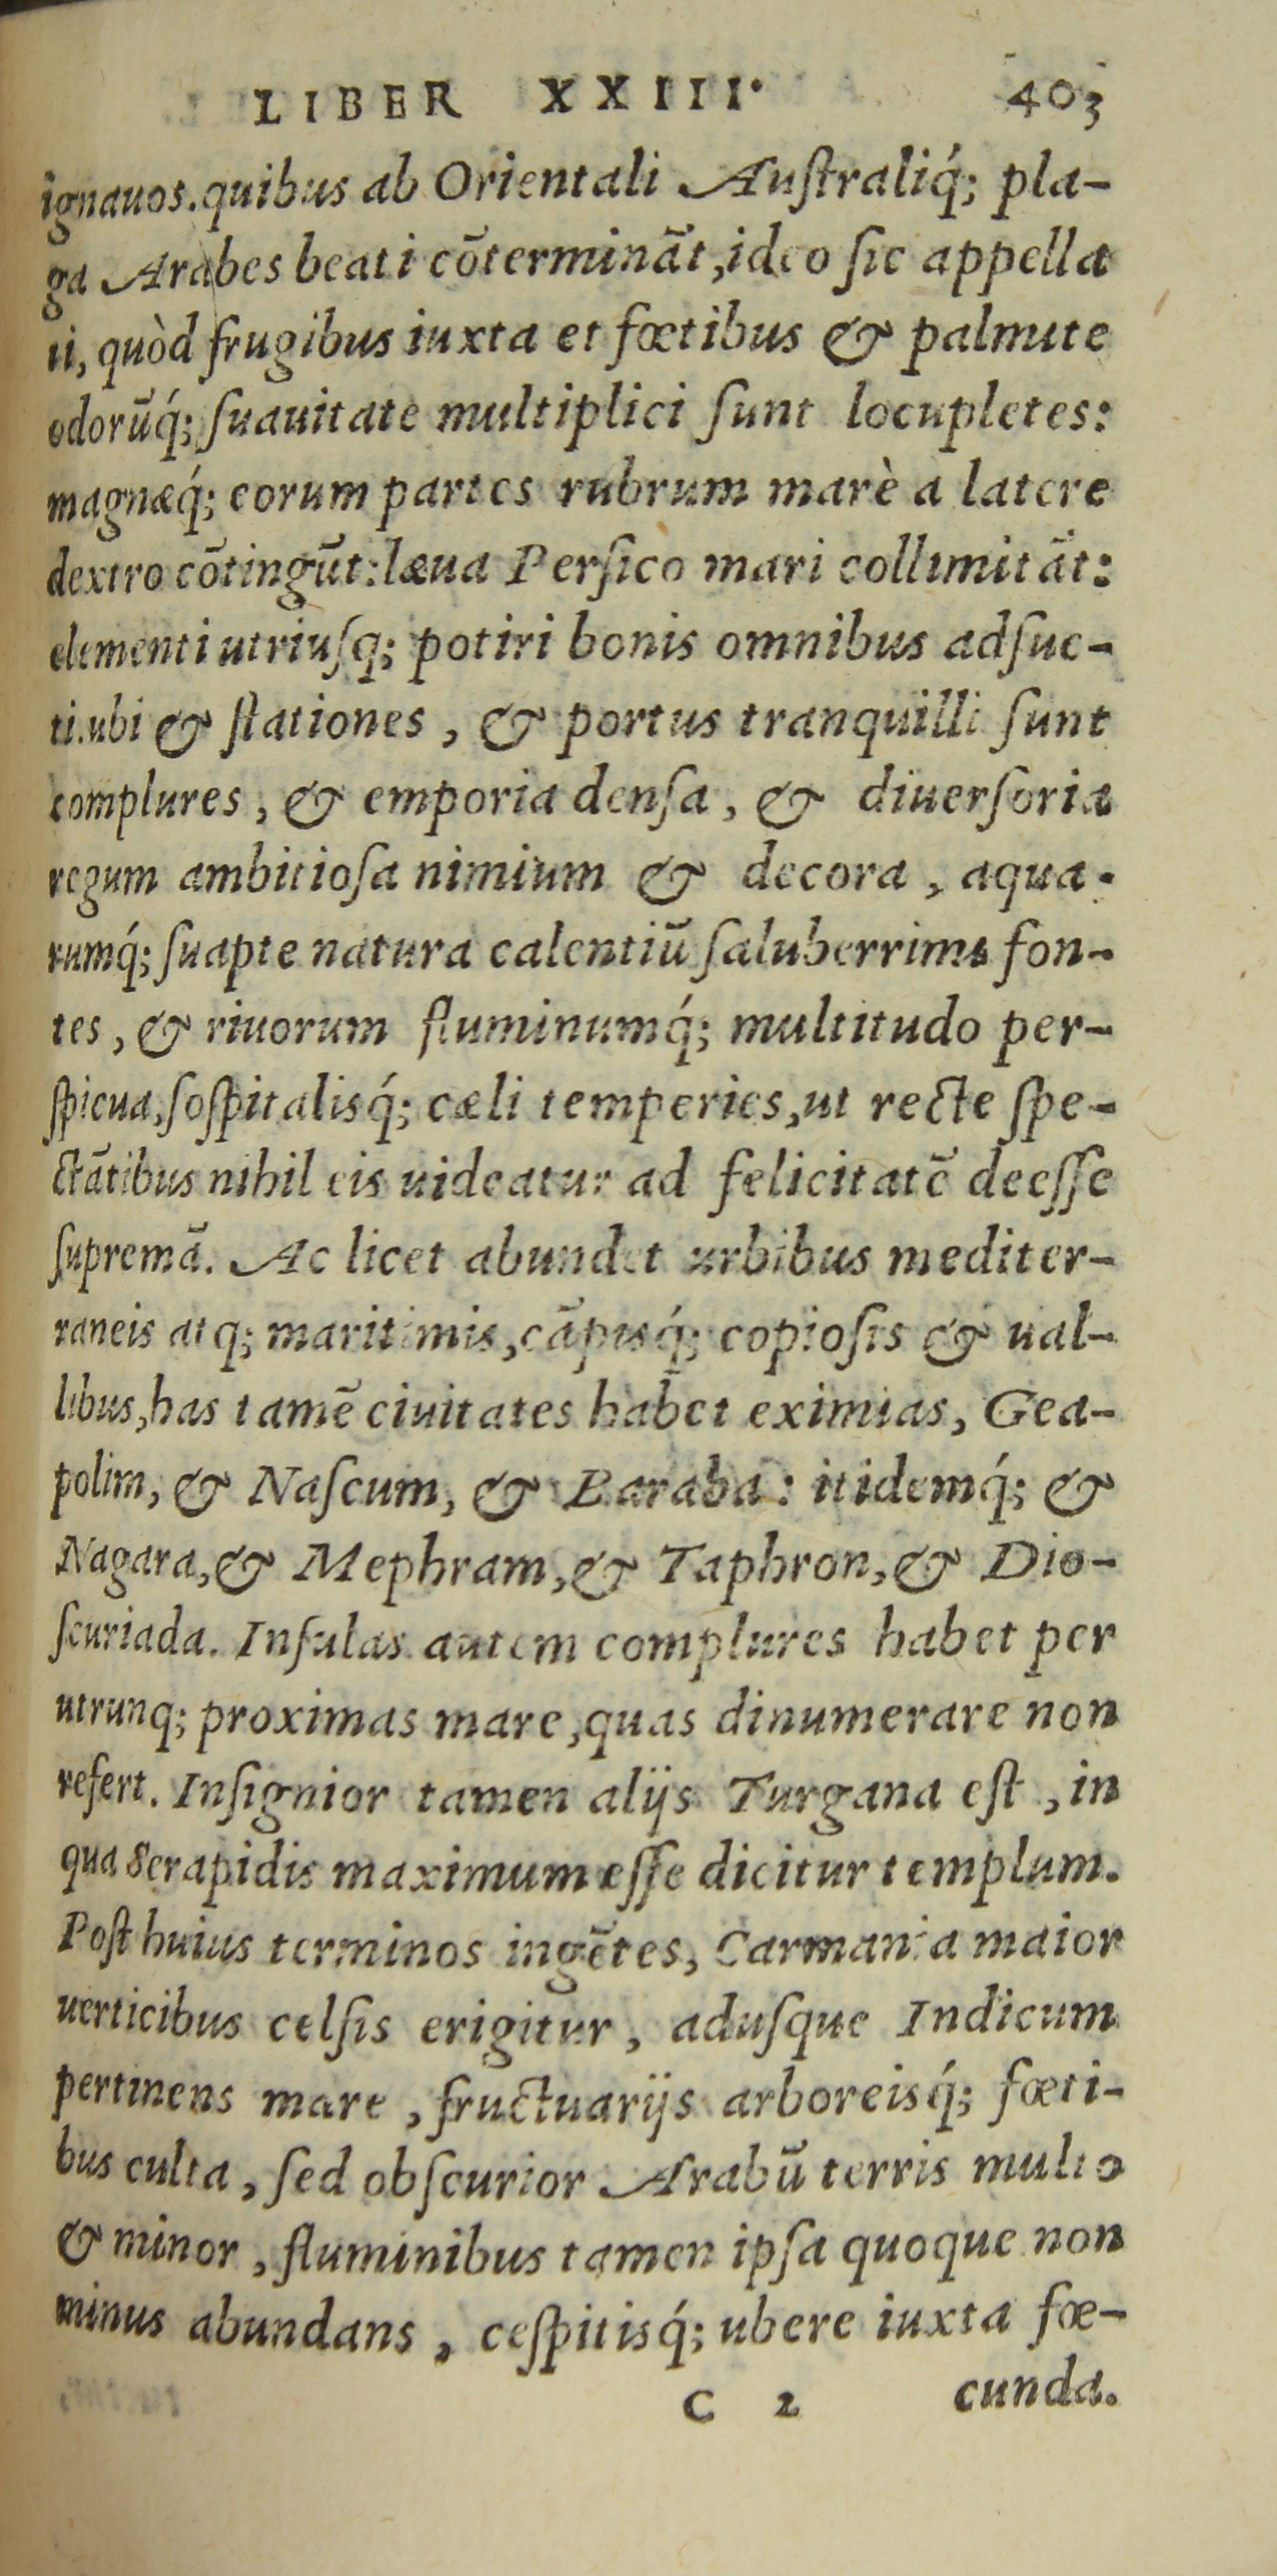 LIBER XXIII. 403
ignauos. quibus ab Orientali Auſtraliq́; pla-
ga Arabes beati cōterminãt, ideo ſic appellat
ii, quòd frugibus iuxta et fœtibus & palmite
odorũq́; ſuauitate multiplici ſunt locupletes:
magnæq́; eorum partes rubrum marè a latere
dextro cōtingũt: læua Perſico mari collimitãt:
elementi utriuſq; potiri bonis omnibus adſue-
ti. ubi & ſtationes, & portus tranquilli ſunt
complures, & emporia denſa, & diuerſoria
regum ambitioſa nimium & decora, aqua-
rumq́; ſuapte natura calentiũ ſaluberrimi fon-
tes, & riuorum fluminumq́; multitudo per-
ſpicua, ſoſpitalisq́; cæli temperies, ut recte ſpe-
ctãtibus nihil eis uideatur ad felicitatē deeſſe
ſupremã. Ac licet abundet urbibus mediter-
raneis atq; maritimis, cãpisq́; copioſis & ual-
libus, has tamē ciuitates habet eximias, Gea-
polim, & Naſcum, & Baraba: itidemq́; &
Nagara, & Mephram, & Taphron, & Dio-
ſcuriada. Inſulas autem complures habet per
utrunq; proximas mare, quas dinumerare non
refert. Inſignior tamen alijs Turgana eſt, in
qua Serapidis maximum eſſe dicitur templum.
Poſt huius terminos ingētes, Carmania maior
uerticibus celſis erigitur, aduſque Indicum
pertinens mare, fructuarijs arboreisq́; fœti-
bus culta, ſed obſcurior Arabũ terris multo
& minor, fluminibus tamen ipſa quoque non
minus abundans, ceſpitisq́; ubere iuxta fœ-
C 2 cunda.